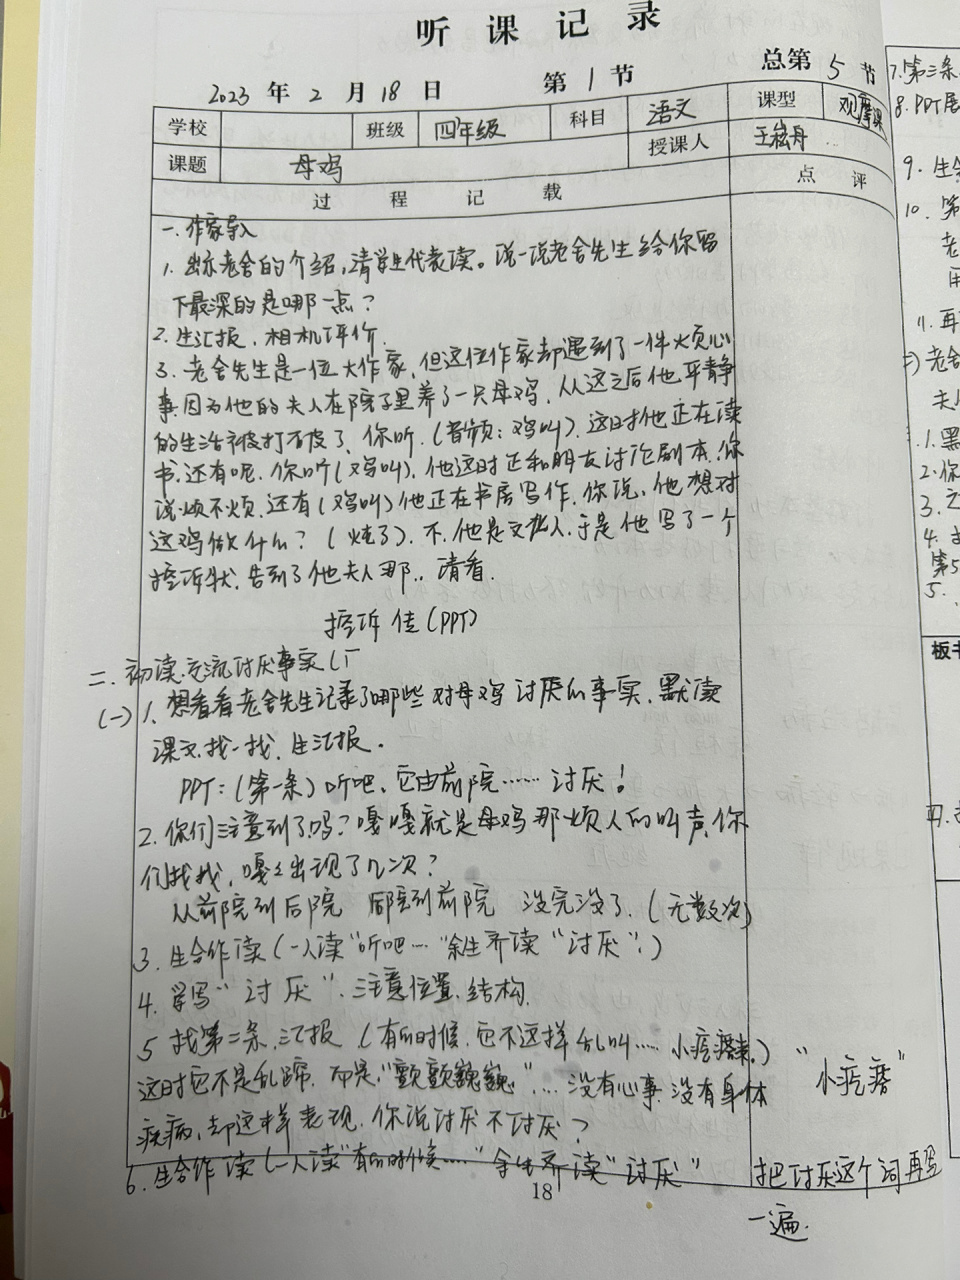 听课记录
2023年2月18日 第1节 总第5节
学校 班级 四年级 科目 语文 课型 观摩课
课题 母鸡 授课人 王崧舟
过程记载 点评
一.作家导入
1.出示老舍的介绍,请学生代表读。说一说老舍先生给你留
下最深的是哪一点?
2.生汇报,相机评价.
3.老舍先生是一位大作家,但这位作家却遇到了一件烦心
事.因为他的夫人在院子里养了一只母鸡,从这之后他平静
的生活被打破了,你听.(音频:鸡叫).这时他正在读
书.还有呢,你听(鸡叫),他这时正和朋友讨论剧本.你
说烦不烦.还有(鸡叫)他正在书房写作,你说,他想对
这鸡做什么?(炖了).不,他是文化人,于是他写了一个
控诉状,告到了他夫人那..请看.
控诉信(PPT)
二.初读.交流讨厌事实
(一)1.想看看老舍先生记录了哪些对母鸡讨厌的事实,默读
课文,找一找,生汇报.
PPT:(第一条)听吧,它由前院……讨厌!
2.你们注意到了吗?嘎嘎就是母鸡那烦人的叫声,你
们找找,嘎嘎出现了几次?
从前院到后院 后院到前院 没完没了.(无数次)
3.生合作读(一人读"听吧…"余生齐读"讨厌"!)
4.学写"讨厌".注意位置.结构.
5 找第二条.汇报(有的时候,它不这样乱叫……小疙瘩来.) "小疙瘩"
这时它不是乱啼.而是"颤颤巍巍"…没有心事.没有身体
疾病,却这样表现,你说讨厌不讨厌?
6.生合作读(一人读"有的时候……"余生齐读"讨厌" 把讨厌这个词再写
一遍.
18
7.第三条
8.PPT展
9.生
10.第
老
用
11.再
老舍
夫
1.黑
2.你
3.
4.
第5
5.
板书
四.